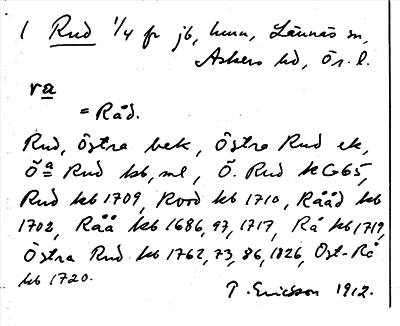 1 Rud 1/4 fr jb, hmn, Lännäs sn,
Askers hd, Ör. l.
ra
= Råd.
Rud, Östra bek, Östra Rud ek,
Ö:a Rud kb, ml, Ö. Rud KG65,
Rud kb 1709, Rood kb 1710, Rååd kb
1702, Råå kb 1686, 97, 1717, Rå kb 1719,
Östra Rud kb 1762, 73, 86, 1826, Öst-Rå
kb 1720.
T. Ericsson 1912.